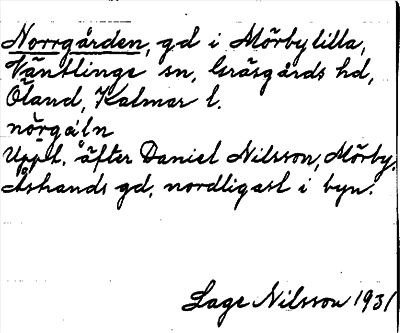 Norrgården, gd i Mörbylilla,
Ventlinge sn, Gräsgårds hd,
Öland, Kalmar l.
nörgáln
Uppt. äfter Daniel Nilsson, Mörby,
Åshands gd, nordligast i byn.
Lage Nilsson 1931